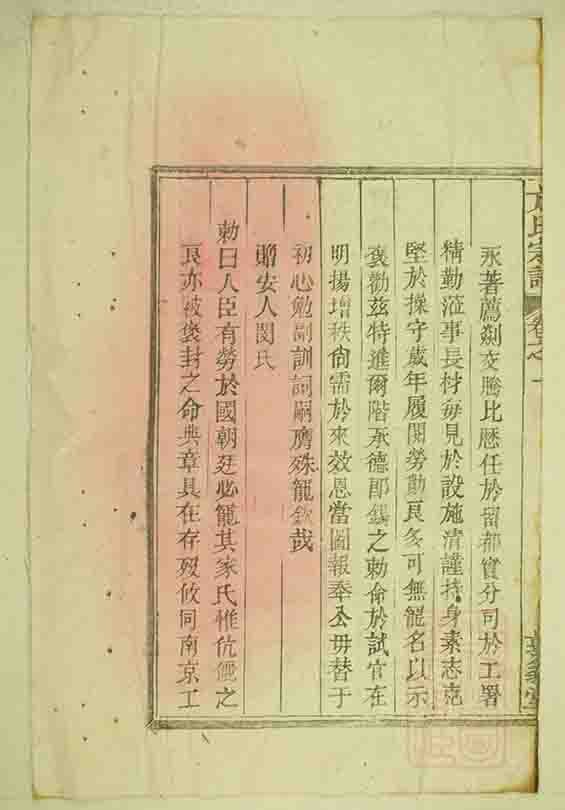 氏宗譜 卷之一
永著薦剡交騰比歷任於留都實分司於工署
精勤涖事長材每見於設施清謹持身素志克
堅於操守歲年履閱勞勩良多可無寵名以示
褒勸兹特進爾階承德郎錫之勅命於試官在
明揚增秩尙需於來效恩當圖報奉公毋替于
初心勉副訓詞嗣膺殊寵欽哉
贈安人閔氏
勅曰人臣有勞於國朝廷必寵其家氏惟伉儷之
良亦被褒封之命典章具在存歿攸同南京工